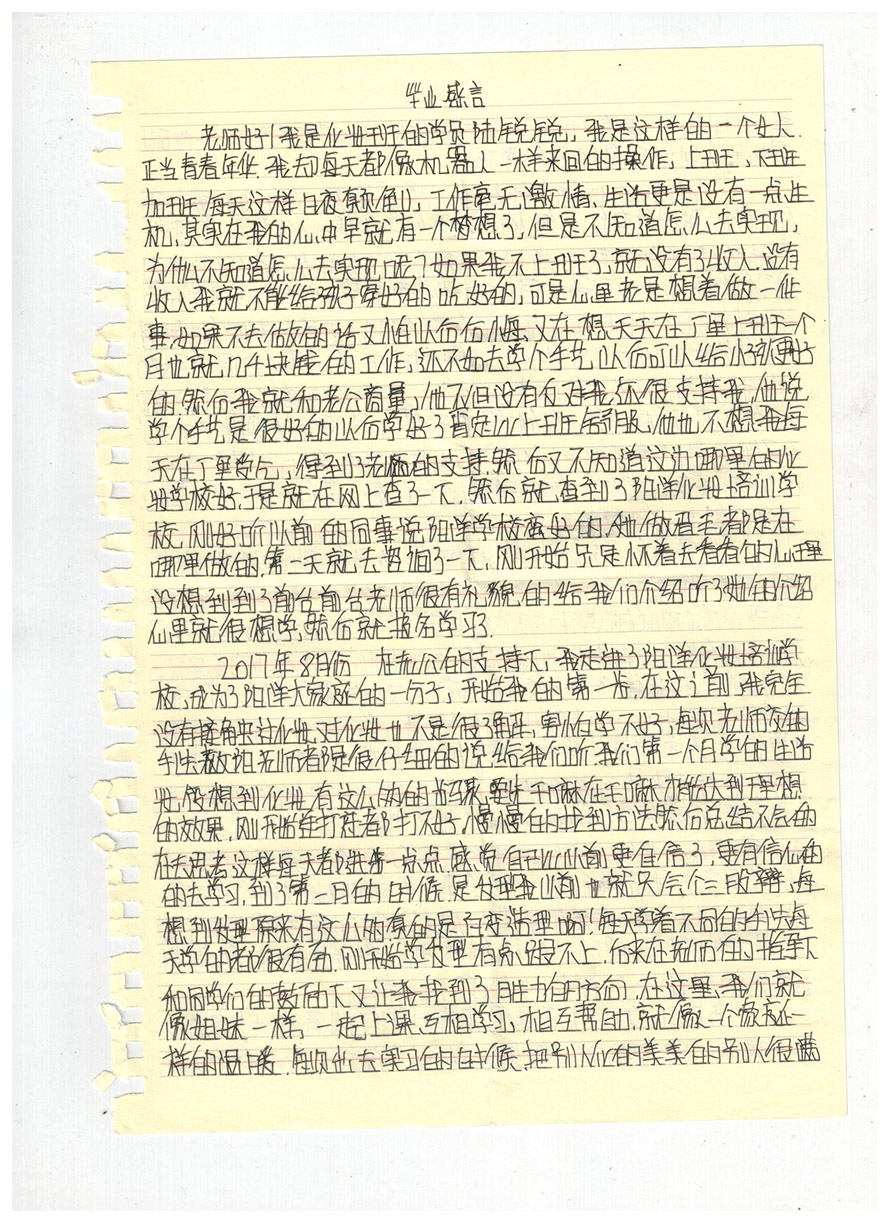 毕业感言
老师好!我是化妆班的学员陆锐锐,我是这样的一个女人.
正当青春年华.我却每天都像机器人一样来回的操作,上班,下班
加班每天这样日夜颠倒,工作毫无激情、生活更是没有一点生
机,其实在我的心中早就有一个梦想了,但是不知道怎么去实现,
为什么不知道怎么去实现呢?如果我不上班了,就没有了收入.没有
收入我就不能给孩子穿好的吃好的,可是心里老是想着做一件
事,如果不去做的话又怕以后后悔.又在想.天天在厂里上班一个
月也就几千块钱的工作,还不如去学个手艺,以后可以给小孩更好
的.然后我就和老公商量,他不但没有反对我还很支持我,他说
学个手艺是很好的以后学好了肯定比上班舒服,他也不想我每
天在厂里,得到了老师的支持.然后又不知道这边哪里的化
妆学校好,于是就在网上查了一下.然后就查到了阳洋化妆培训学
校,刚好听以前的同事说阳洋学校蛮好的.她做眉毛都是在
哪里做的.第二天就去咨询了一下,刚开始只是怀着去看看的心理
没想到到了前台前台老师很有礼貌的给我们介绍听了她的介绍
心里就很想学,然后就报名学习了.
2017年8月份 在老公的支持下,我走进了阳洋化妆培训学
校,成为了阳洋大家庭的一份子,开始我的第一步.在这之前,我完全
没有接触过化妆,对化妆也不是很了解,害怕学不好,每次老师交的
手法教程老师都是很仔细的说给我们听我们第一个月学的生活
妆,没想到化妆有这么的步骤,要先干嘛在干嘛才能达到理想
的效果,刚开始连打底都打不好,慢慢的找到方法.然后总结不会的
在去思考这样每天都进步一点点.感觉自己比以前更自信了,更有信心的
的去学习,到了第二月的时候.是发型我以前也就只会个三股辫,每
想到发型原来有这么的真的是百变造型啊!每天学着不同的手法每
天学的都很有劲.刚开始学发型有点跟不上,后来在老师的指导下
和同学们的鼓励下又让我找到了努力的方向,在这里,我们就
像姐妹一样,一起上课,互相学习,相互帮助,就像一个家庭一
样的温暖.每次出去实习的时候,把别人化的美美的别人很满